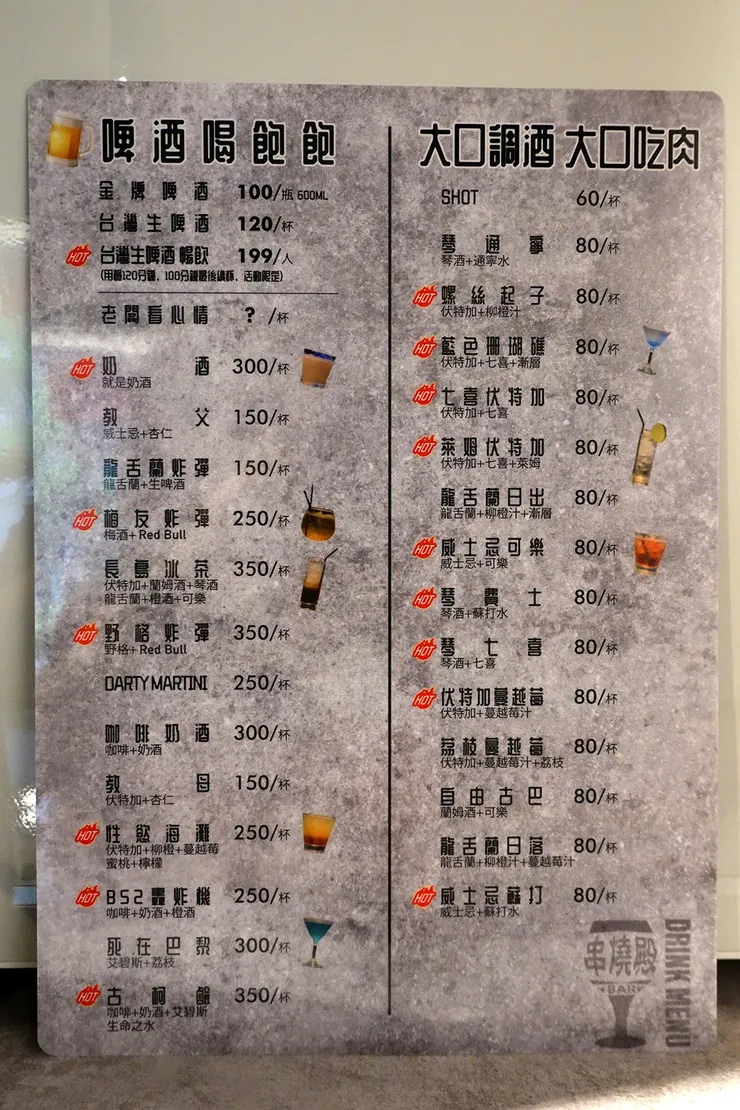 啤酒喝飽飽
金牌啤酒 100/瓶 600ML
台灣生啤酒 120/杯
HOT 台灣生啤酒暢飲 199/人
(用餐120分鐘、100分鐘最後續杯、活動限定)
老闆看心情 ? /杯
HOT 奶酒 300/杯
就是奶酒
教父 150/杯
威士忌+杏仁
龍舌蘭炸彈 150/杯
龍舌蘭+生啤酒
HOT 梅友炸彈 250/杯
梅酒+Red Bull
長島冰茶 350/杯
伏特加+蘭姆酒+琴酒
龍舌蘭+橙酒+可樂
HOT 野格炸彈 350/杯
野格+Red Bull
DARTY MARTINI 250/杯
咖啡奶酒 300/杯
咖啡+奶酒
教母 150/杯
伏特加+杏仁
HOT 性慾海灘 250/杯
伏特加+柳橙+蔓越莓
蜜桃+檸檬
HOT B52轟炸機 250/杯
咖啡+奶酒+橙酒
死在巴黎 300/杯
艾碧斯+荔枝
HOT 古柯鹼 350/杯
咖啡+奶酒+艾碧斯
生命之水
大口調酒 大口吃肉
SHOT 60/杯
琴通寧 80/杯
琴酒+通寧水
HOT 螺絲起子 80/杯
伏特加+柳橙汁
HOT 藍色珊瑚礁 80/杯
伏特加+七喜+漸層
HOT 七喜伏特加 80/杯
伏特加+七喜
HOT 萊姆伏特加 80/杯
伏特加+七喜+萊姆
龍舌蘭日出 80/杯
龍舌蘭+柳橙汁+漸層
HOT 威士忌可樂 80/杯
威士忌+可樂
HOT 琴費士 80/杯
琴酒+蘇打水
HOT 琴七喜 80/杯
琴酒+七喜
HOT 伏特加蔓越莓 80/杯
伏特加+蔓越莓汁
荔枝蔓越莓 80/杯
伏特加+蔓越莓汁+荔枝
自由古巴 80/杯
蘭姆酒+可樂
龍舌蘭日落 80/杯
龍舌蘭+柳橙汁+蔓越莓汁
HOT 威士忌蘇打 80/杯
威士忌+蘇打水
串燒殿
BAR
DRINK MENU